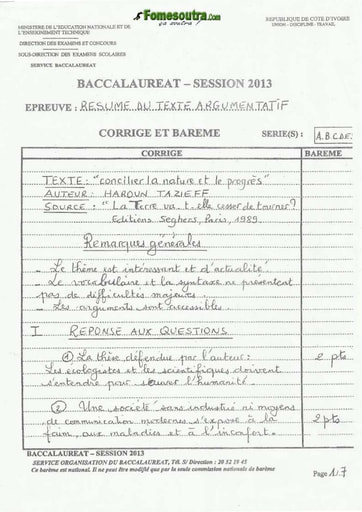 Fomesoutra.com
ça soutra !
MINISTERE DE L'EDUCATION NATIONALE ET DE
L'ENSEIGNEMENT TECHNIQUE
REPUBLIQUE DE COTE D'IVOIRE
UNION – DISCIPLINE – TRAVAIL
DIRECTION DES EXAMENS ET CONCOURS
SOUS-DIRECTION DES EXAMENS SCOLAIRES
SERVICE BACCALAUREAT
BACCALAUREAT – SESSION 2013
EPREUVE : RESUME DU TEXTE ARGUMENTATIF
CORRIGE ET BAREME SERIE(S) : A.B.C.D.E.
CORRIGE BAREME
TEXTE : "concilier la nature et le progrès"
AUTEUR : HAROUN TAZIEFF
SOURCE : "La Terre va-t-elle cesser de tourner?
Editions Seghers, Paris, 1989.
Remarques générales
- Le thème est intéressant et d'actualité.
- Le vocabulaire et la syntaxe ne présentent
pas de difficultés majeures.
- Les arguments sont accessibles.
I REPONSE AUX QUESTIONS
① La thèse défendue par l'auteur : 2 pts
Les écologistes et les scientifiques doivent
s'entendre pour sauver l'humanité.
② Une société sans industrie ni moyens 2 pts
de communication modernes s'expose à la
faim, aux maladies et à l'inconfort.
BACCALAUREAT – SESSION 2013
SERVICE ORGANISATION DU BACCALAUREAT, Tél. S/ Direction : 20 32 19 45
Ce barème est national. Il ne peut être modifié que par la seule commission nationale de barème
Page 1/7